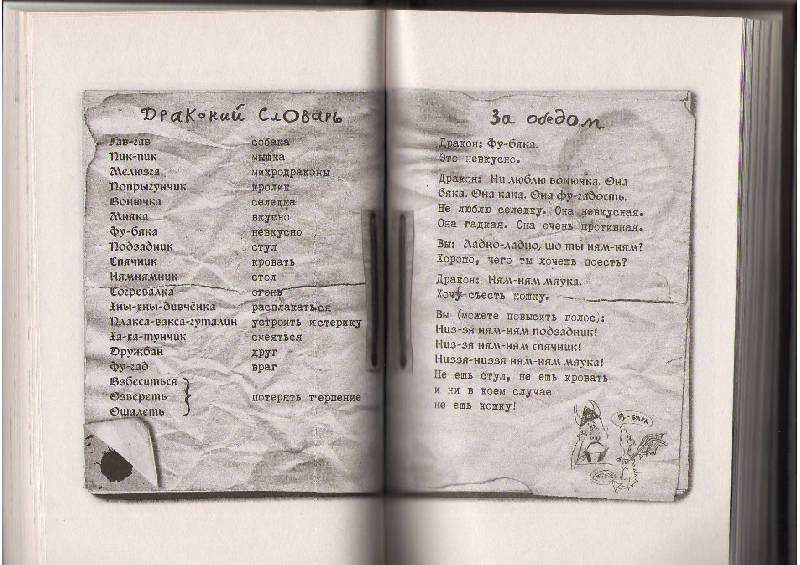 Драконий Словарь
Гав-гав собака
Пик-пик мышка
Мелюзга микродраконы
Попрыгунчик кролик
Вонючка селедка
Мияка вкусно
Фу-бяка невкусно
Подзадник стул
Спячник кровать
Нямнямник стол
Согревалка огонь
Хны-хны-дивчёнка расплакаться
Плакса-вакса-гуталин устроить истерику
Ха-ха-тунчик смеяться
Дружбан друг
Фу-гад враг
Взбеситься
Озвереть потерять терпение
Ошалеть
За обедом
Дракон: Фу-бяка.
Это невкусно.
Дракон: Ни люблю вонючка. Она
бяка. Она кака. Она фу-гадость.
Не люблю селедку. Она невкусная.
Она гадкая. Она очень противная.
Вы: Ладно-ладно, шо ты ням-ням?
Хорошо, чего ты хочешь поесть?
Дракон: Ням-ням мяука.
Хочу съесть кошку.
Вы (можете повысить голос):
Низ-зя ням-ням подзадник!
Низ-зя ням-ням спячник!
Низзя-низзя ням-ням мяука!
Не ешь стул, не ешь кровать
и ни в коем случае
не ешь кошку!